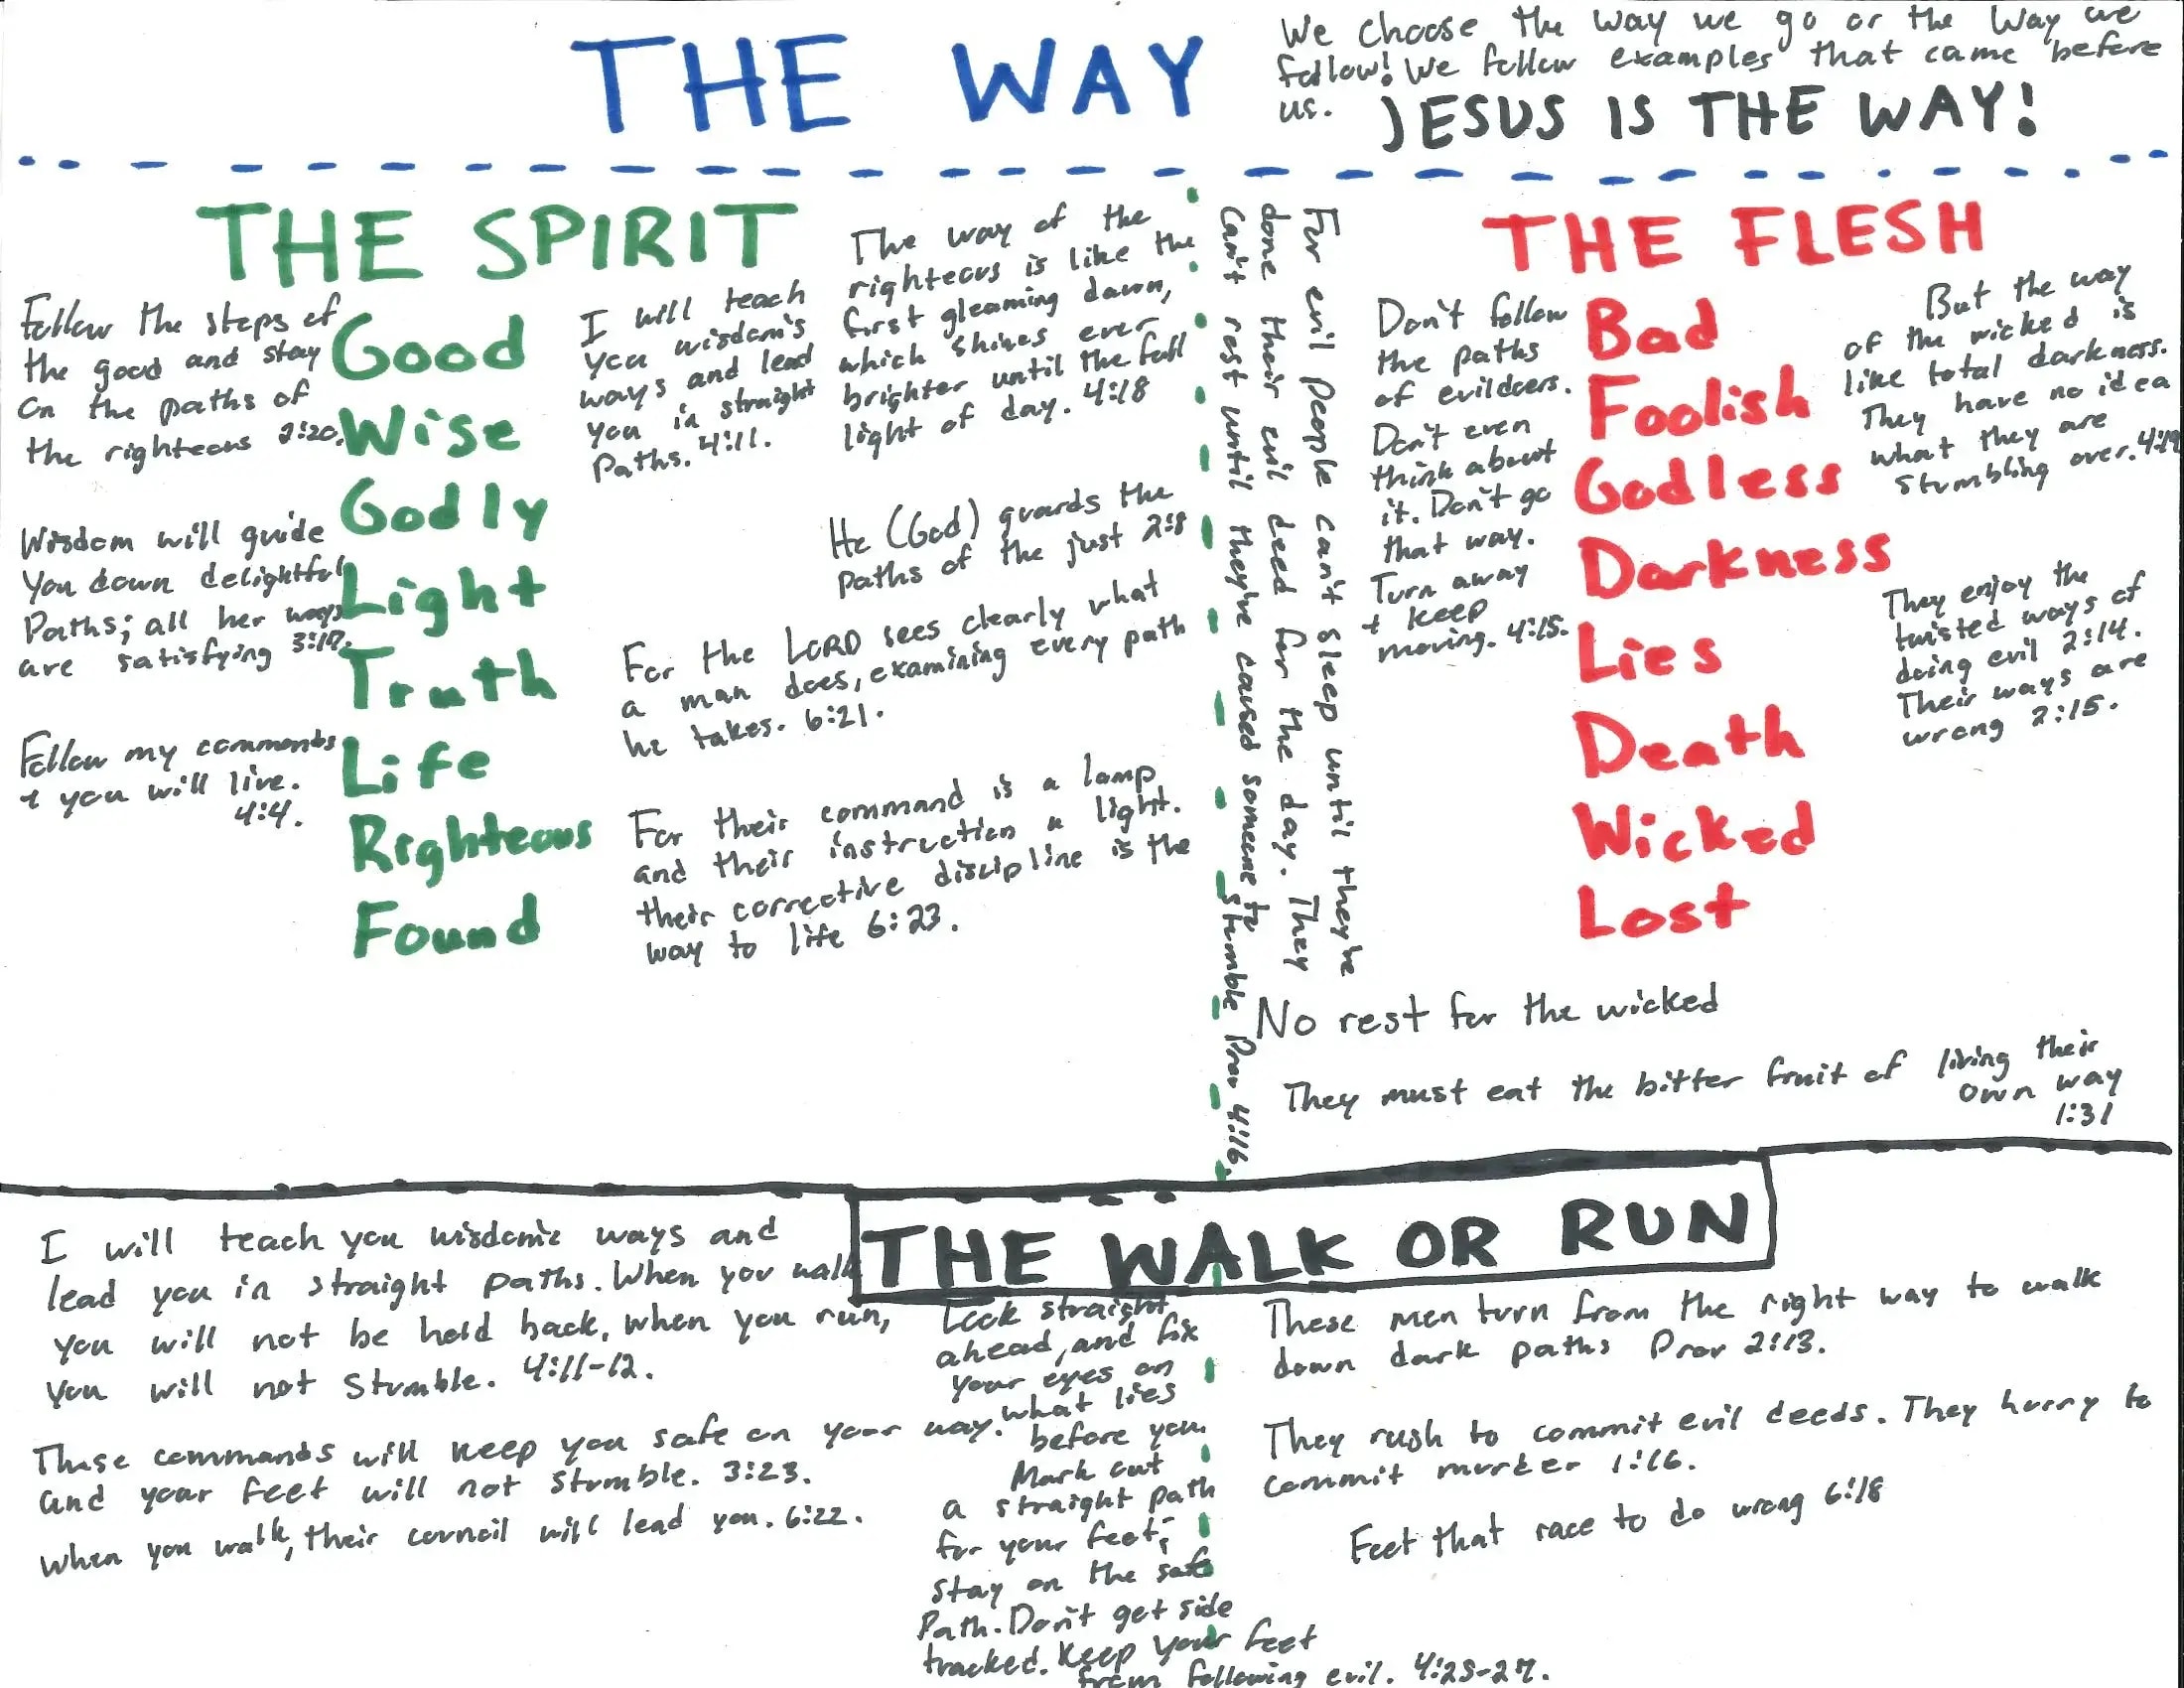 THE WAY
We choose the way we go or the way we
follow! We follow examples that came before
us.
JESUS IS THE WAY!
THE SPIRIT
Follow the steps of
the good and stay
on the paths of
the righteous 2:20.
Wisdom will guide
you down delightful
Paths; all her ways
are satisfying 3:17.
Follow my commands
+ you will live.
4:4.
Good
Wise
Godly
Light
Truth
Life
Righteous
Found
I will teach
you wisdom's
ways and lead
you in straight
Paths. 4:11.
The way of the
righteous is like the
first gleaming dawn,
which shines ever
brighter until the full
light of day. 4:18
He (God) guards the
paths of the just 2:8
For the LORD sees clearly what
a man does, examining every path
he takes. 6:21.
For their command is a lamp
and their instruction a light.
their corrective discipline is the
way to life 6:23.
For evil people can't sleep until they've
done their evil deed for the day. They
can't rest until they've caused someone to stumble Prov 4:16.
THE FLESH
Don't follow
the paths
of evildoers.
Don't even
think about
it. Don't go
that way.
Turn away
+ keep
moving. 4:15.
Bad
Foolish
Godless
Darkness
Lies
Death
Wicked
Lost
But the way
of the wicked is
like total darkness.
They have no idea
what they are
stumbling over. 4:19
They enjoy the
twisted ways of
doing evil 2:14.
Their ways are
wrong 2:15.
No rest for the wicked
They must eat the bitter fruit of living their
own way
1:31
THE WALK OR RUN
I will teach you wisdom's ways and
lead you in straight paths. When you walk
you will not be held back, when you run,
you will not stumble. 4:11-12.
These commands will keep you safe on your way.
and your feet will not stumble. 3:23.
When you walk, their council will lead you. 6:22.
Look straight
ahead, and fix
your eyes on
what lies
before you.
Mark out
a straight path
for your feet;
stay on the safe
Path. Don't get side
tracked. Keep your feet
from following evil. 4:25-27.
These men turn from the right way to walk
down dark paths Prov 2:13.
They rush to commit evil deeds. They hurry to
commit murder 1:16.
Feet that race to do wrong 6:18